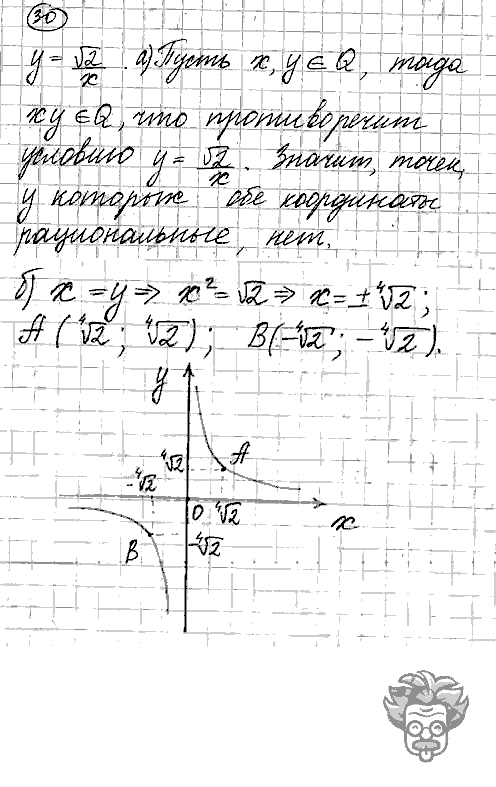 30
y = √2/x . а) Пусть x, y ∈ Q, тогда
xy ∈ Q, что противоречит
условию y = √2/x . Значит, точек,
у которых обе координаты
рациональные, нет.
б) x = y ⇒ x² = √2 ⇒ x = ± ⁴√2 ;
A ( ⁴√2 ; ⁴√2 ) ; B(-⁴√2 ; -⁴√2 ).
y
A
⁴√2
-⁴√2
0 ⁴√2
x
B
-⁴√2